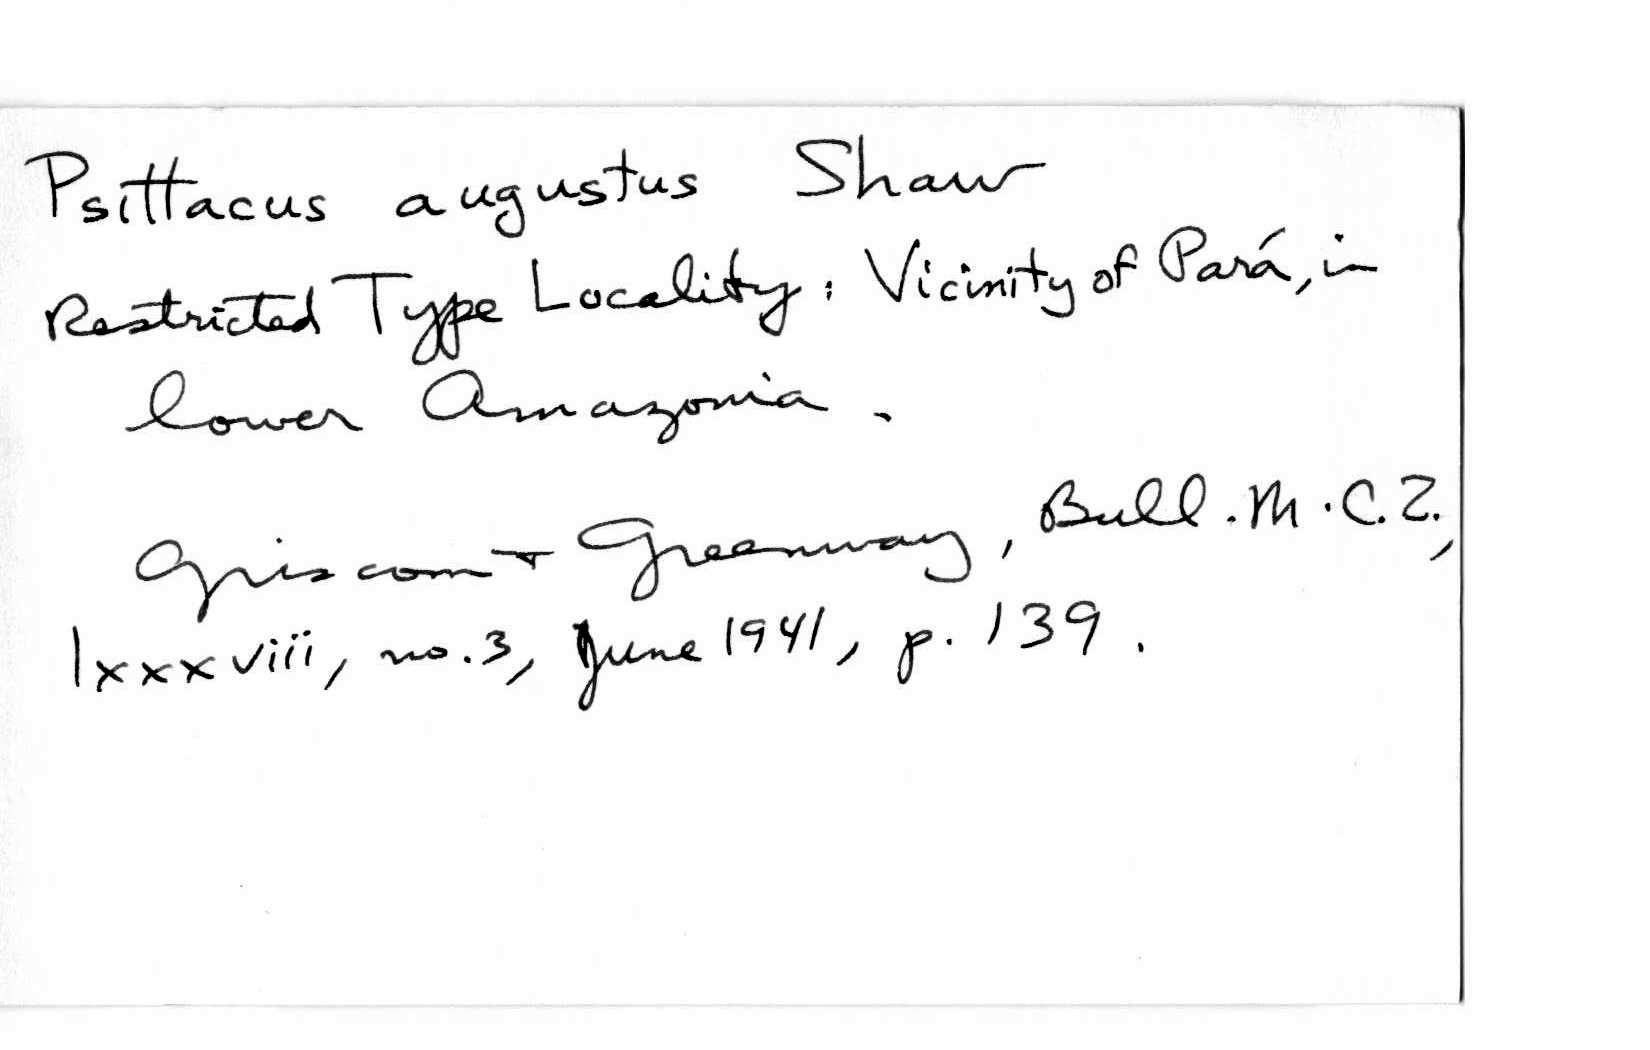 Psittacus augustus Shaw
Restricted Type Locality: Vicinity of Pará, in
lower Amazonia.
Griscom + Greenway, Bull. M.C.Z.,
lxxxviii, no. 3, June 1941, p. 139.